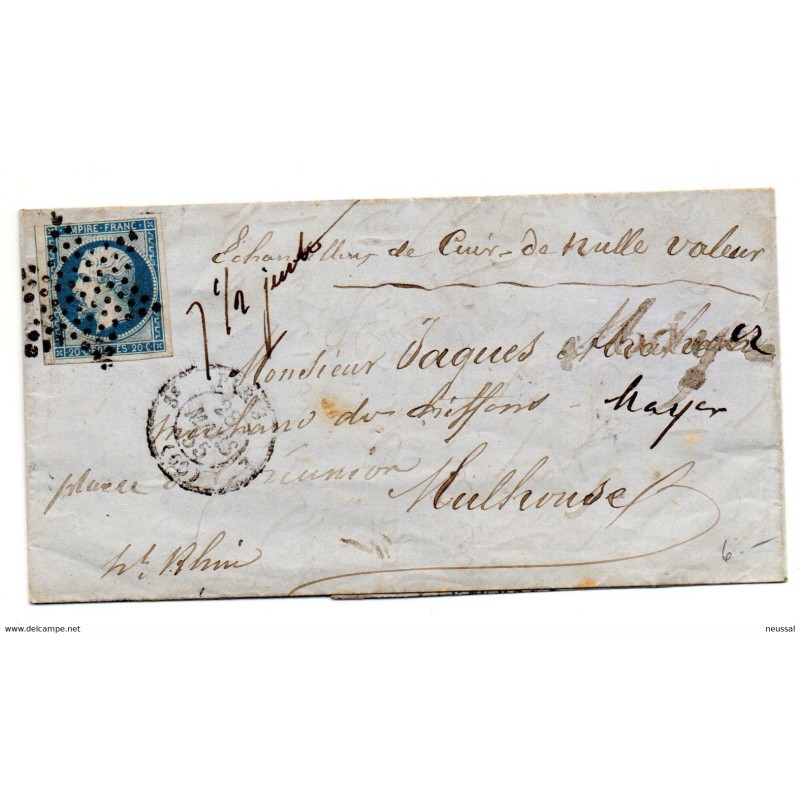 EMPIRE FRANC.
20 C POSTES 20 C
Echantillons de Cuir de nulle valeur
7 1/2
Monsieur Jaques
marchand de chiffons - Mayer
place de Réunion
Mulhouse
ht Rhin
6.-
www.delcampe.net
neussal